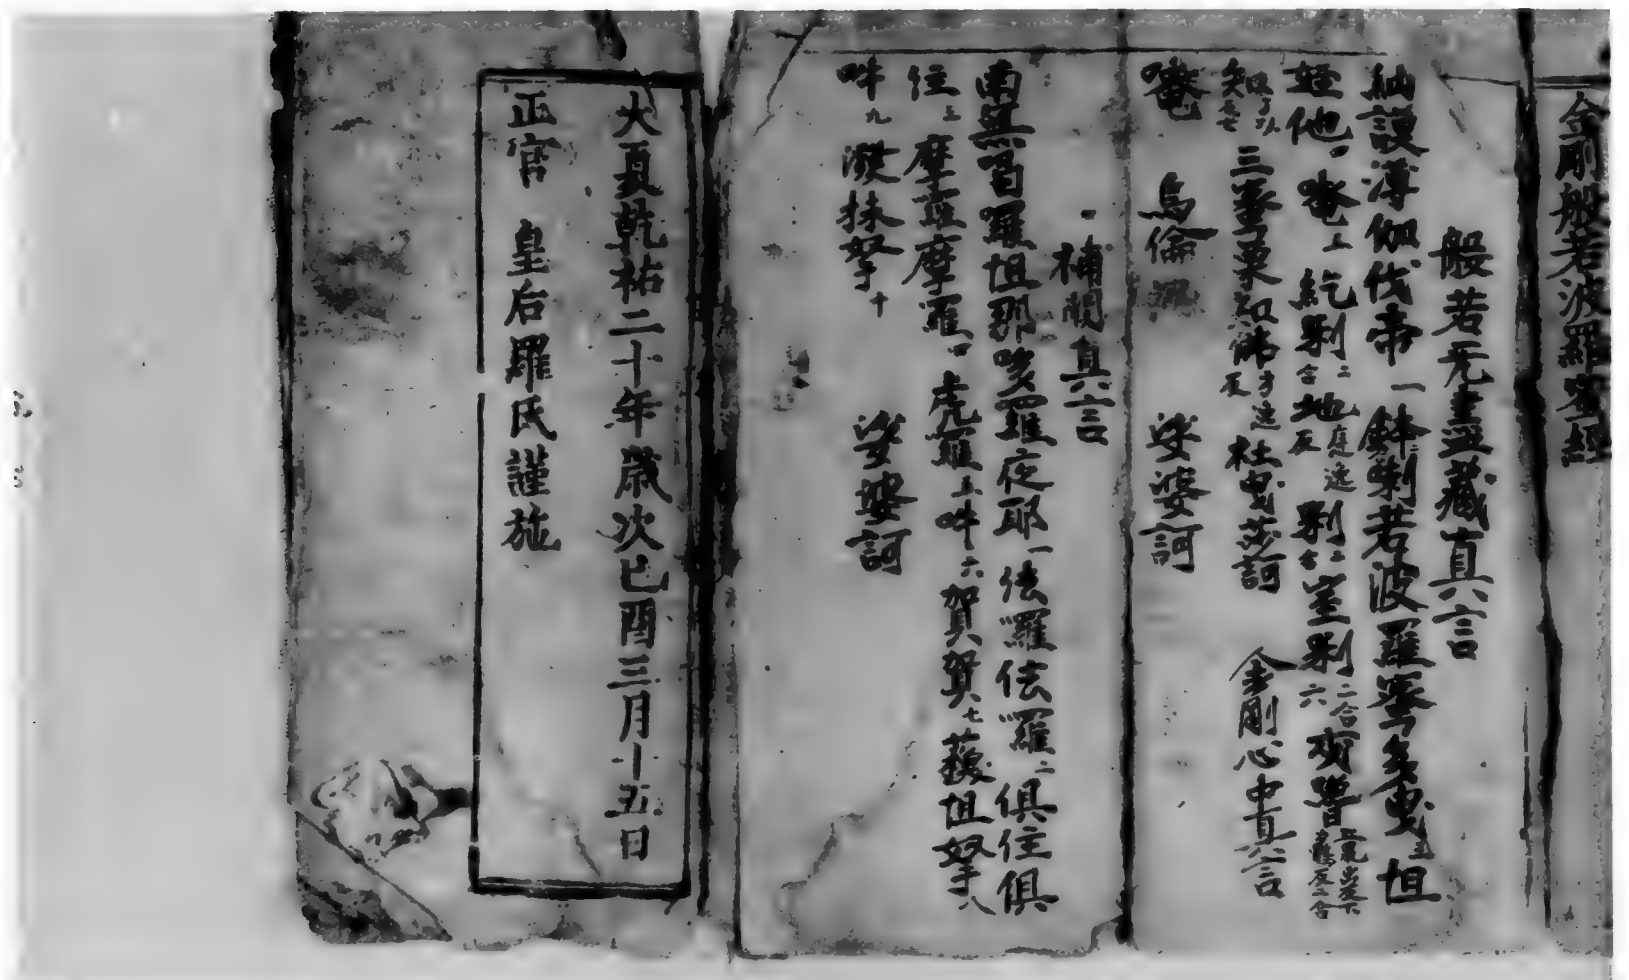 金剛般若波羅蜜經
般若无盡藏真言
納謨薄伽伐帝一鉢剌若波羅蜜多曳二怛
姪他唵三紇剌二合地庭逸反剌二合室剌二合六
知 三蜜栗知佛 社曳莎訶 金剛心中真言
唵 烏倫 娑婆訶
補闕真言
南無喝囉怛那哆羅夜耶一佉囉佉囉二俱住俱
住三摩羅摩羅四虎羅五吽六賀賀七蘇怛拏八
吽九潑抹拏十 娑婆訶
大夏乾祐二十年歲次己酉三月十五日
正宫 皇后羅氏謹施